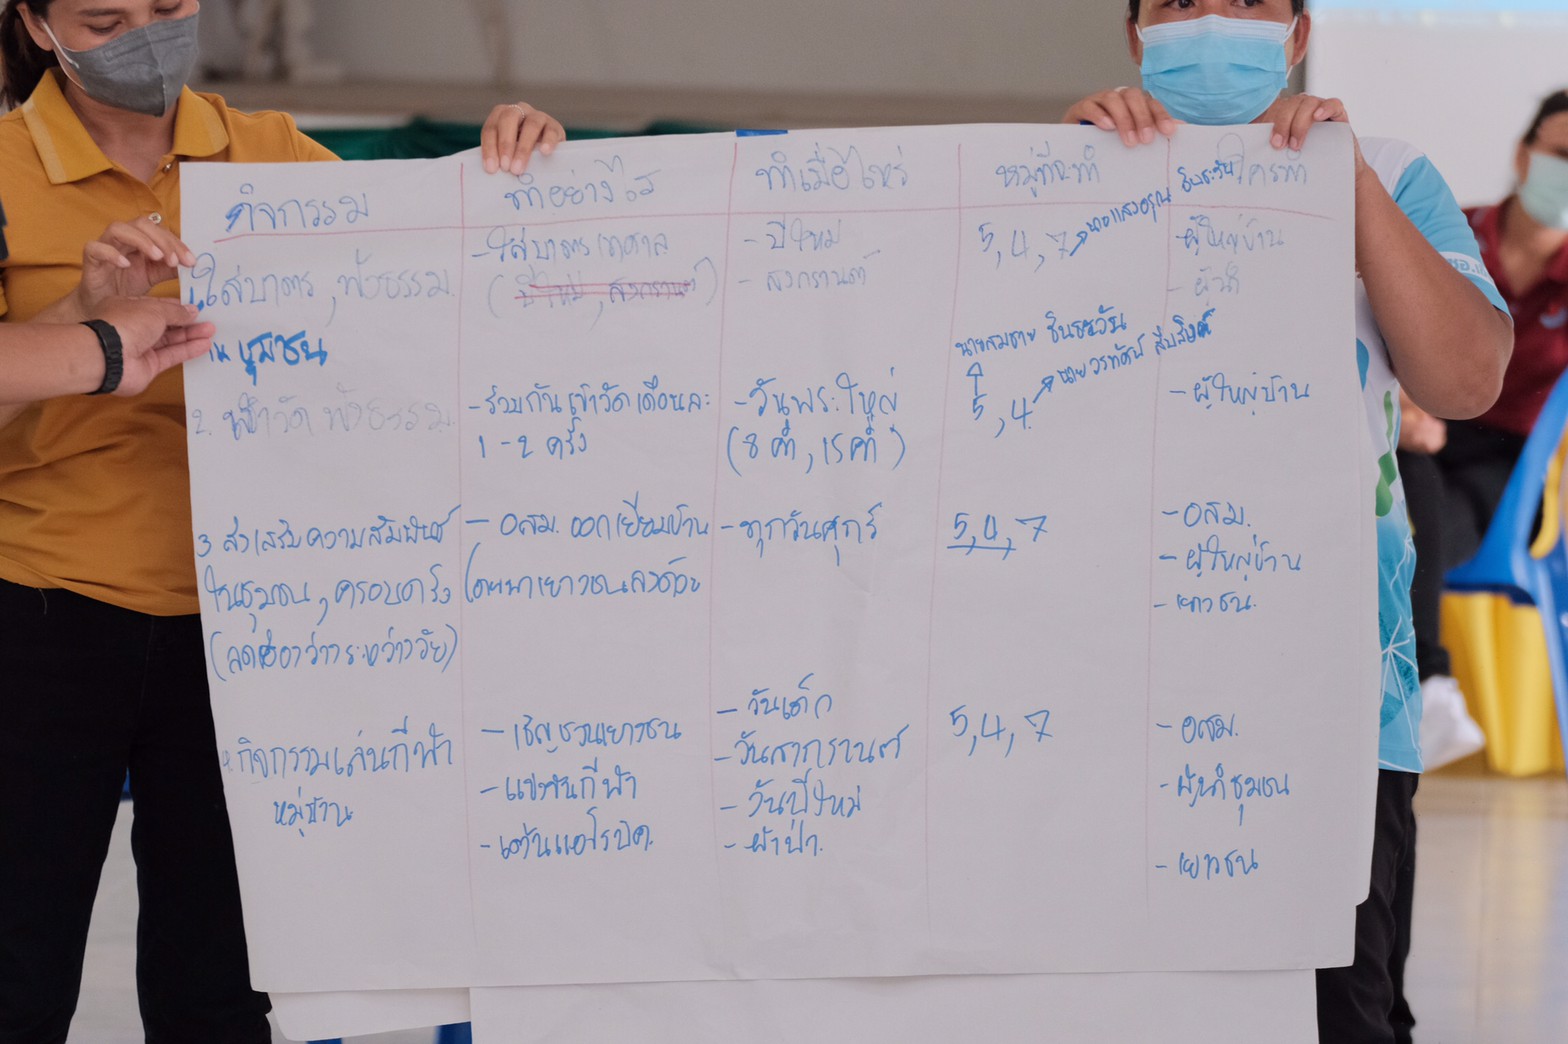 กิจกรรม
ทำอย่างไร
ทำเมื่อไหร่
หมู่ที่จะทำ
ใครทำ
1. ใส่บาตร, ฟังธรรม
ใน ชุมชน
- ใส่บาตรเทศกาล
(ปีใหม่, สงกรานต์)
- ปีใหม่
- สงกรานต์
5, 4, 7
- ผู้ใหญ่บ้าน
- ผู้นำ
2. เข้าวัด ฟังธรรม
- ร่วมกันเข้าวัดเดือนละ
1 - 2 ครั้ง
- วันพระใหญ่
(8 ค่ำ, 15 ค่ำ)
นายสมชาย
นายวรทัศน์
5, 4
- ผู้ใหญ่บ้าน
3 ส่งเสริมความสัมพันธ์
ในชุมชน, ครอบครัว
(ลดช่องว่างระหว่างวัย)
- อสม. ออกเยี่ยมบ้าน
- ทุกวันศุกร์
5, 4, 7
- อสม.
- ผู้ใหญ่บ้าน
- เยาวชน
กิจกรรมเล่นกีฬา
หมู่บ้าน
- เชิญชวนเยาวชน
- แข่งขันกีฬา
- เต้นแอโรบิค.
- วันเด็ก
- วันสงกรานต์
- วันปีใหม่
- ผ้าป่า.
5, 4, 7
- อสม.
- ผู้นำชุมชน
- เยาวชน